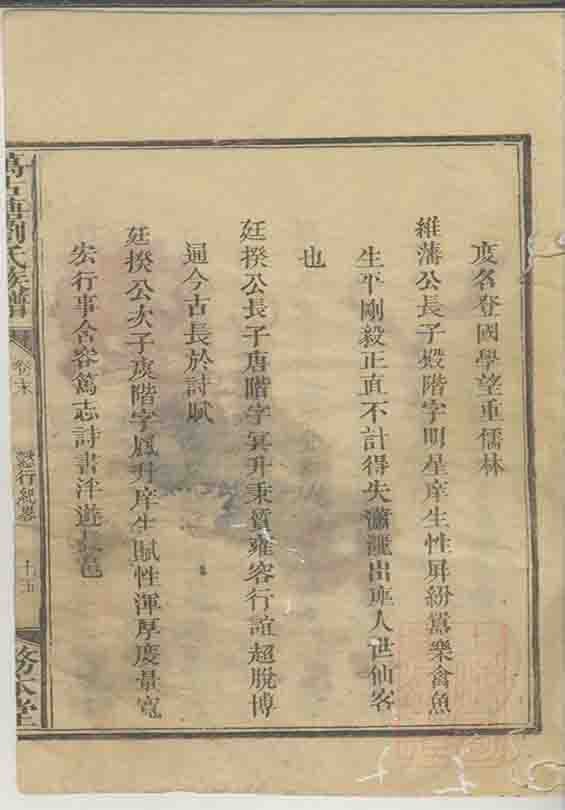 度名登國學望重儒林
維藩公長子殿階字明星庠生性屏紛囂樂禽魚
生平剛毅正直不計得失瀟灑出班人世仙客
也
廷揆公長子唐階字冥升秉質雍容行誼超脫博
通今古長於詩賦
廷揆公次子虞階字鳳升庠生賦性渾厚度量寬
宏行事含容篤志詩書泮遊邑
劉氏族譜
卷末
懿行紀畧
十五
務本堂